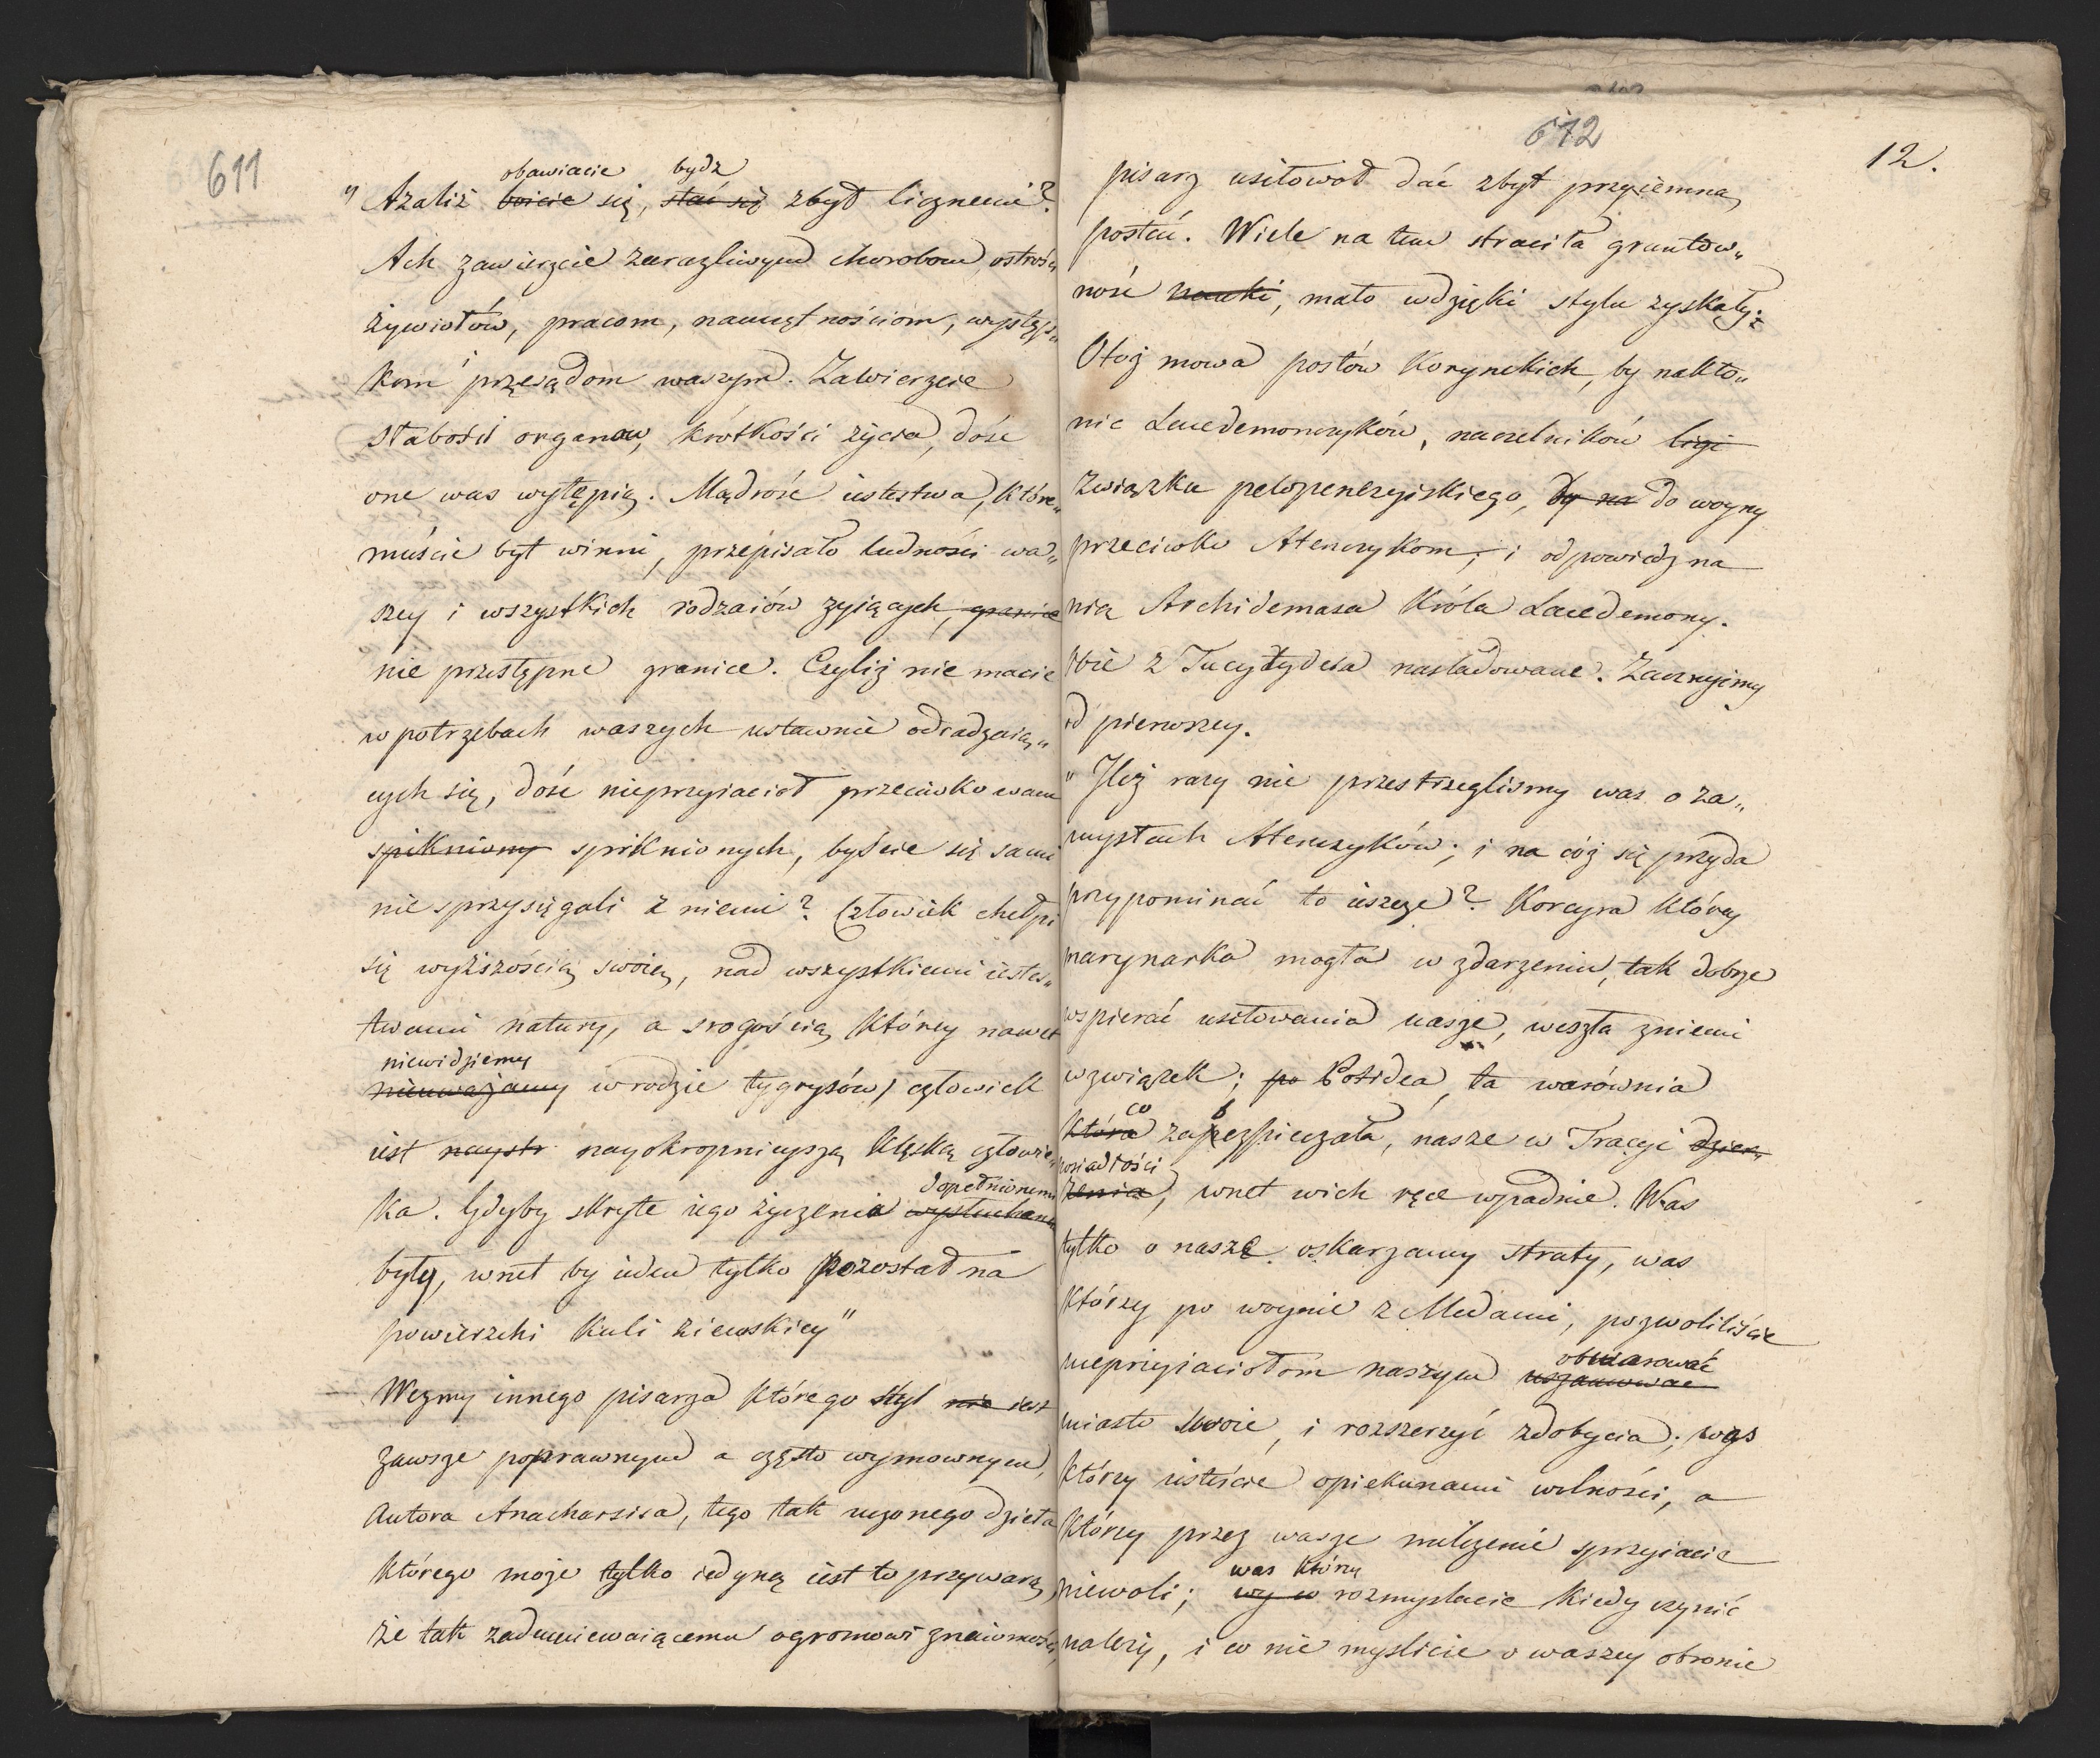 611
obawiacie bydz
" Azaliż boicie się, stać się zbyt licznemi?
Ach zawierzcie zaraźliwym chorobom, ostrości
żywiołów, pracom, namiętnościom, występ„
kom przesądom waszym. Zawierzcie
słabości organow, krótkości życia, dość
one was wytępią. Mądrość iestestwa, które„
muście byt winni, przepisało ludności wa„
szey i wszystkich rodzaiów żyiących, granice
nie przestępne granice. Czyliż nie macie
w potrzebach waszych ustawnie odradzaią„
cych się, dość nieprzyiacioł przeciwko wam
spiknionỳ spiknionych, byście się sami
nie sprzysięgali z niemi? Człowiek chełpi
się wyższością swoią, nad wszystkiemi iestes„
twami natury, a srogością którey nawet
niewidziemy
nieuważamy w rodzie tygrysów, człowiek
iest naystr nayokropnieyszą klęską człowie„
ka. Gdyby skryte iego życzenia wysłuchane
dopełnionemi
były, wnet by ieden tylko pozostał na
powierzchi kuli ziemskiey"
Wezmy innego pisarza którego styl nie iest
zawsze poprawnym a często wymownym,
Autora Anacharsisa, tego tak uczonego dzieła
którego może tylko iedyną iest to przywarą,
że tak zadumiewaiącemu ogromowi znaiomości,
612
12.
pisarz usiłował dać zbyt przyiemną
postać. Wiele na tem straciła gruntow„
ność nauki, mało wdzięki stylu zyskały:
Otoż mowa posłów Korynckich, by nakło„
nic Lacedemonczyków, naczelników ligi
związku peloponezyiskiego, by na do woyny
przeciwko Atenczykom, i odpowiedz na
nią Archidemasa Króla Lacedemony.
obie z Tucydydesa nasladowane. Zacznijmy
od pierwszey.
" Ileż razy nie przestrzeglismy was o za„
mysłach Atenczyków; i na cóż się przyda
przypominać to ieszcze? Korcyra którey
marynarka mogła w zdarzeniu, tak dobrze
wspierać usiłowania nasze, weszła z niemi
w związek; po Potidea, ta warównia
co b
która zapezpieczała, nasze w Tracyi dzier„
posiadłości
żenia, wnet w ich ręce wpadnie. Was
tylko o nasze oskarzamy straty, was
którzy po woynie z Medami, pozwoliliście
obwarować
nieprzyiaciołom naszym uszanować
miasto swoie, i rozszerzyć zdobycia; was
którzy iesteście opiekunami wolności, a
którzy przez wasze milczenie sprzyiacie
was którzy
niewoli; wy w rozmyslacie kiedy czynić
należy, i co nie myslicie o waszey obronie